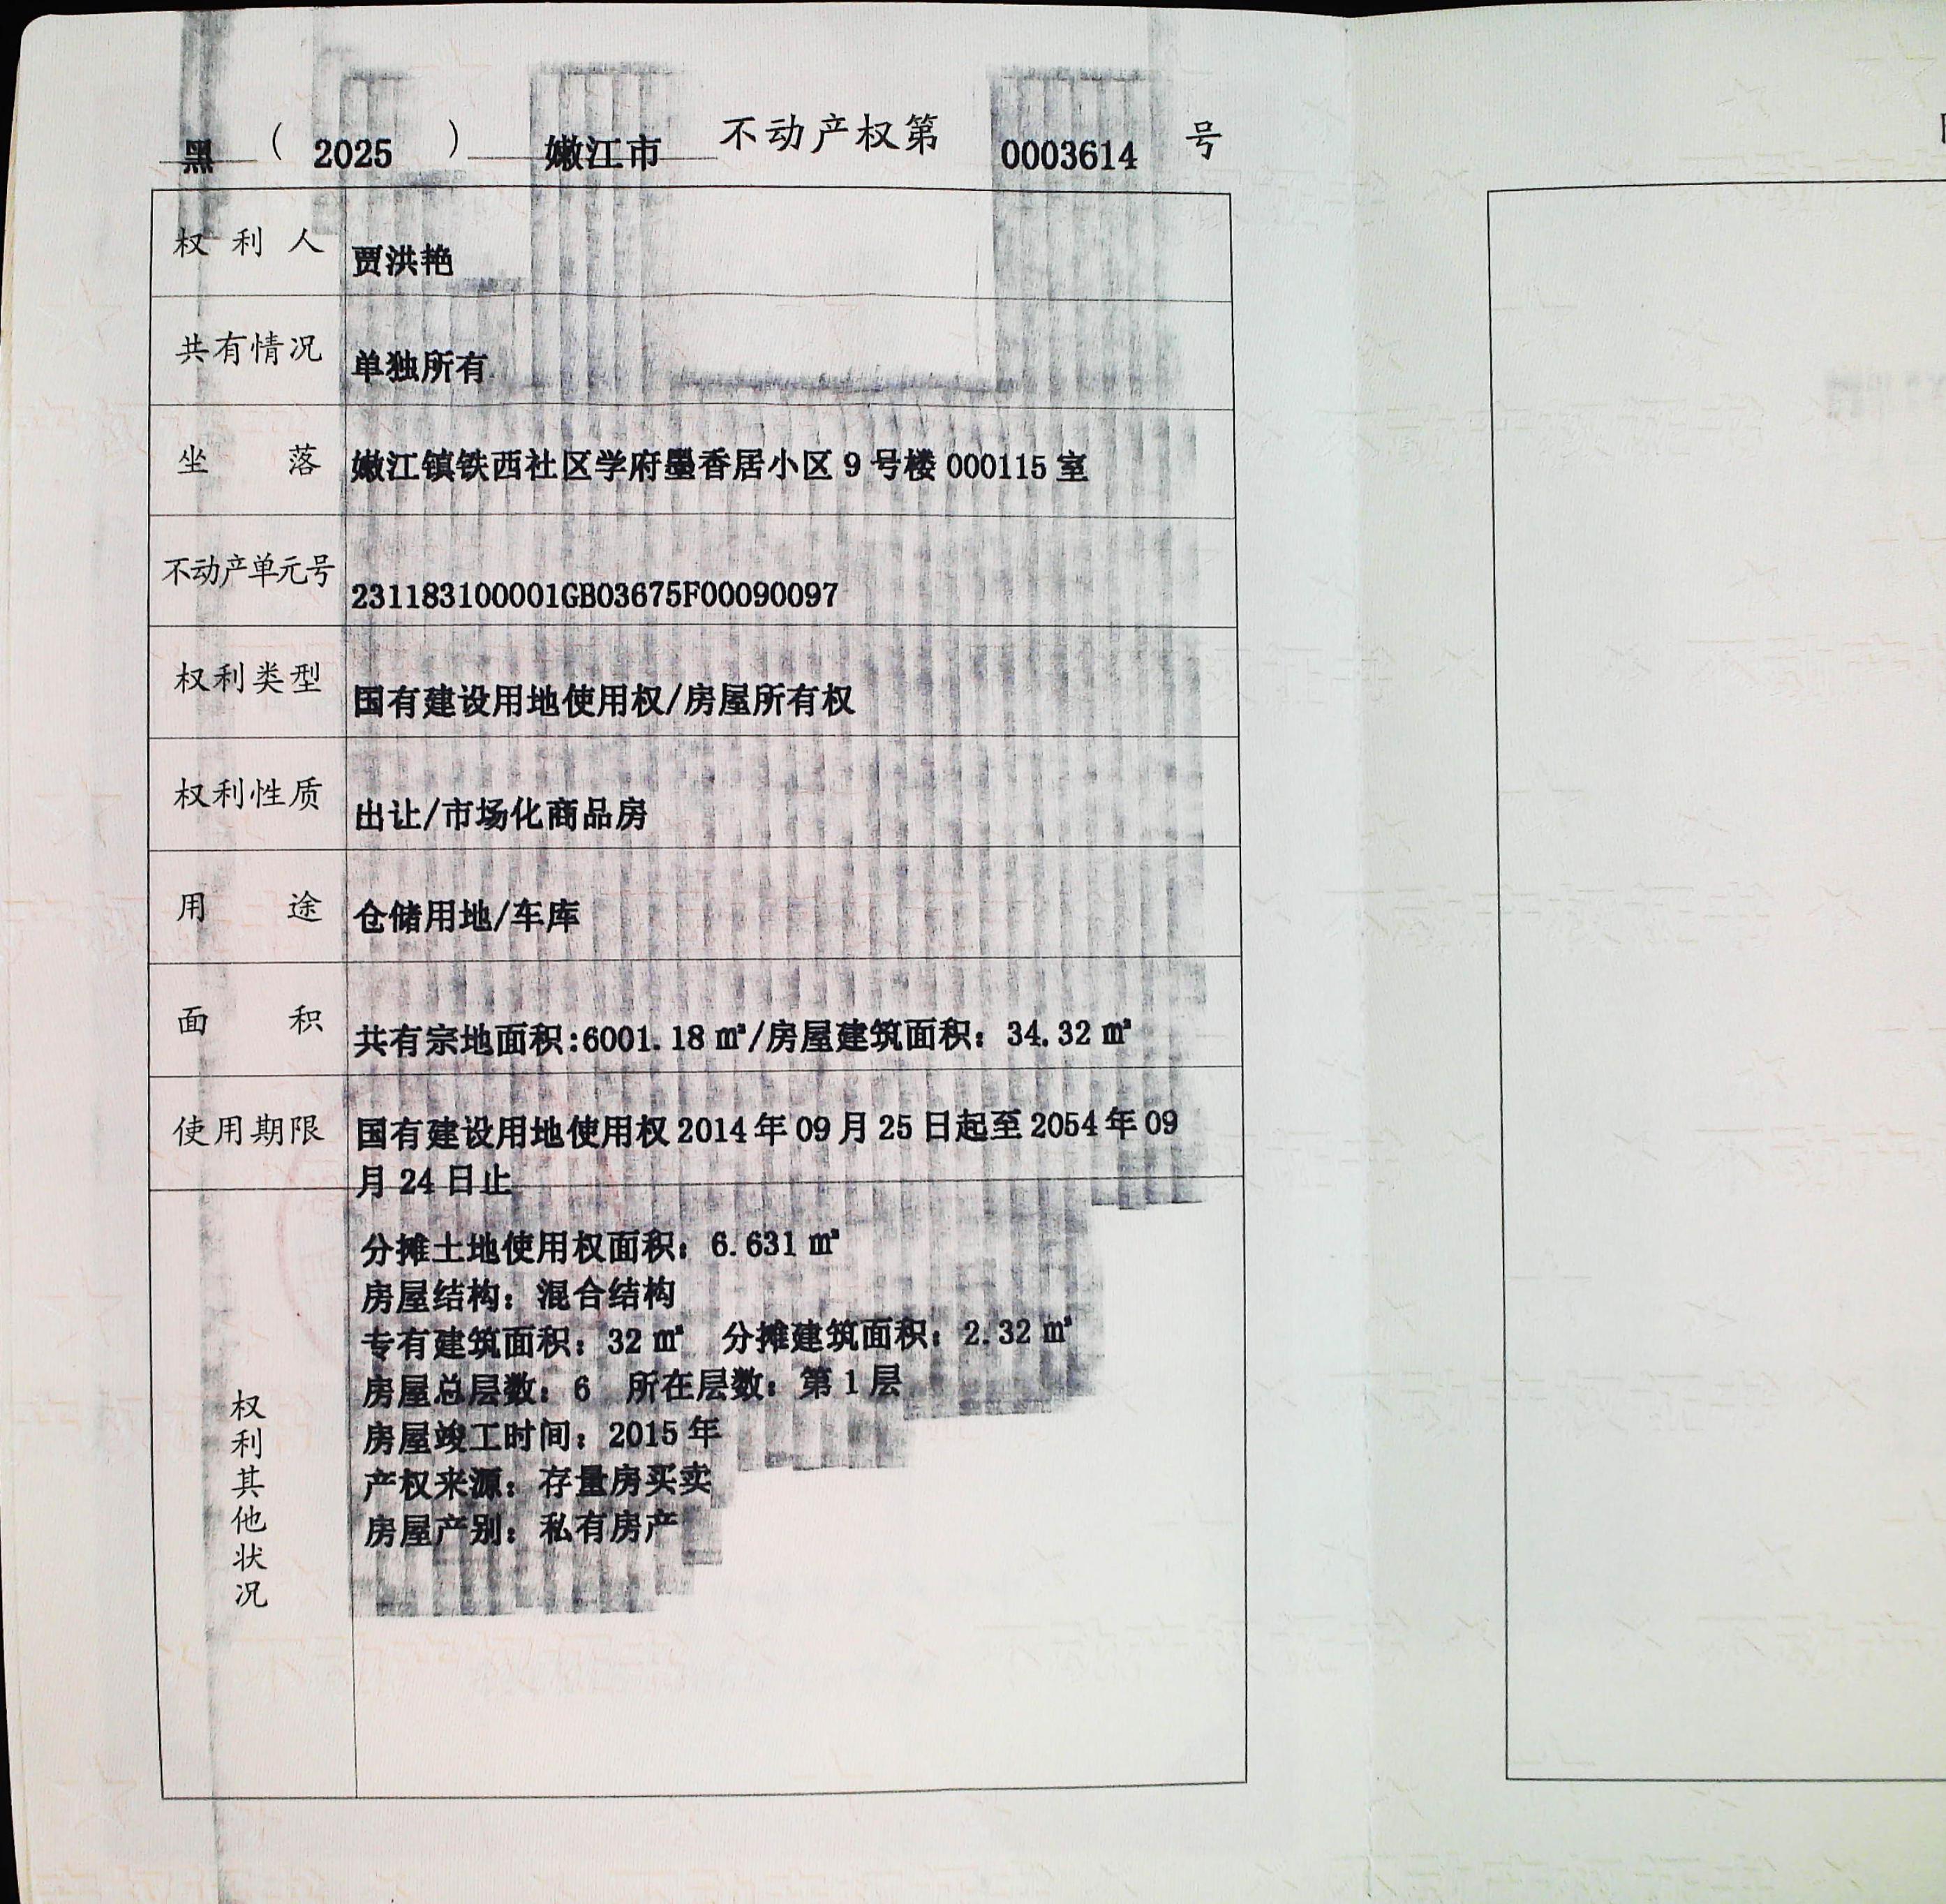 黑（2025）嫩江市不动产权第0003614号
权利人 贾洪艳
共有情况 单独所有
坐落 嫩江镇铁西社区学府墨香居小区9号楼000115室
不动产单元号 231183100001GB03675F00090097
权利类型 国有建设用地使用权/房屋所有权
权利性质 出让/市场化商品房
用途 仓储用地/车库
面积 共有宗地面积:6001.18㎡/房屋建筑面积：34.32㎡
使用期限 国有建设用地使用权2014年09月25日起至2054年09
月24日止
权利其他状况
分摊土地使用权面积：6.631㎡
房屋结构：混合结构
专有建筑面积：32㎡ 分摊建筑面积：2.32㎡
房屋总层数：6 所在层数：第1层
房屋竣工时间：2015年
产权来源：存量房买卖
房屋产别：私有房产